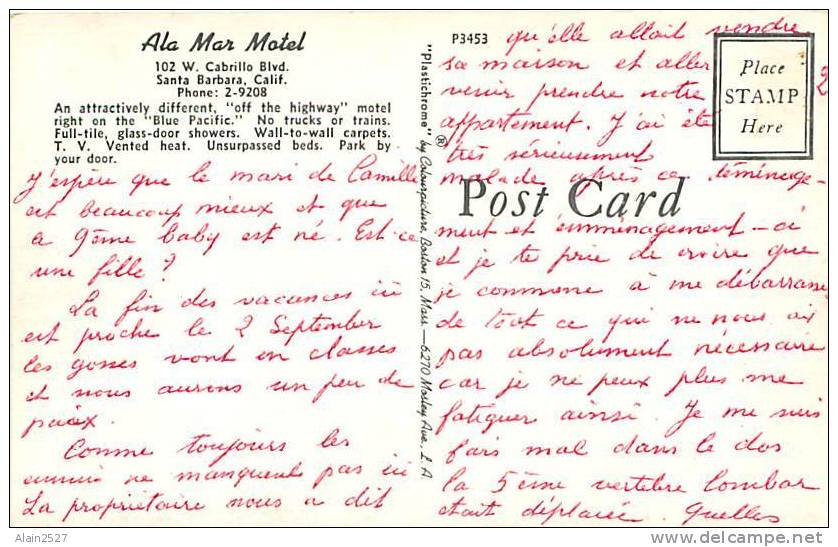 Ala Mar Motel
102 W. Cabrillo Blvd.
Santa Barbara, Calif.
Phone: 2-9208
An attractively different, "off the highway" motel
right on the "Blue Pacific." No trucks or trains.
Full-tile, glass-door showers. Wall-to-wall carpets.
T. V. Vented heat. Unsurpassed beds. Park by
your door.
J'espère que le mari de Camille
est beaucoup mieux et que
a 9ème baby est né. Est-ce
une fille ?
La fin des vacances ici
est proche le 2 September
les gosses vont en classes
et nous aurons un peu de
paix.
Comme toujours les
ennuis ne manquent pas ici
La propriétaire nous a dit
"Plastichrome" ® by Colourpicture, Boston 15, Mass. — 6270 Mosley Ave. L A
P3453
qu'elle allait vendre
sa maison et aller
venir prendre notre
appartement. J'ai été
très sérieusement
malade après ce déménage-
Post Card
ment et emménagement - ci
et je te prie de croire que
je commence à me débarrasser
de tout ce qui ne nous est
pas absolument nécessaire
car je ne peux plus me
fatiguer ainsi. Je me suis
fais mal dans le dos
la 5ème vertebre lombar
etait déplacée. Quelles
Place
STAMP
Here
2
Alain2527
delcampe.net